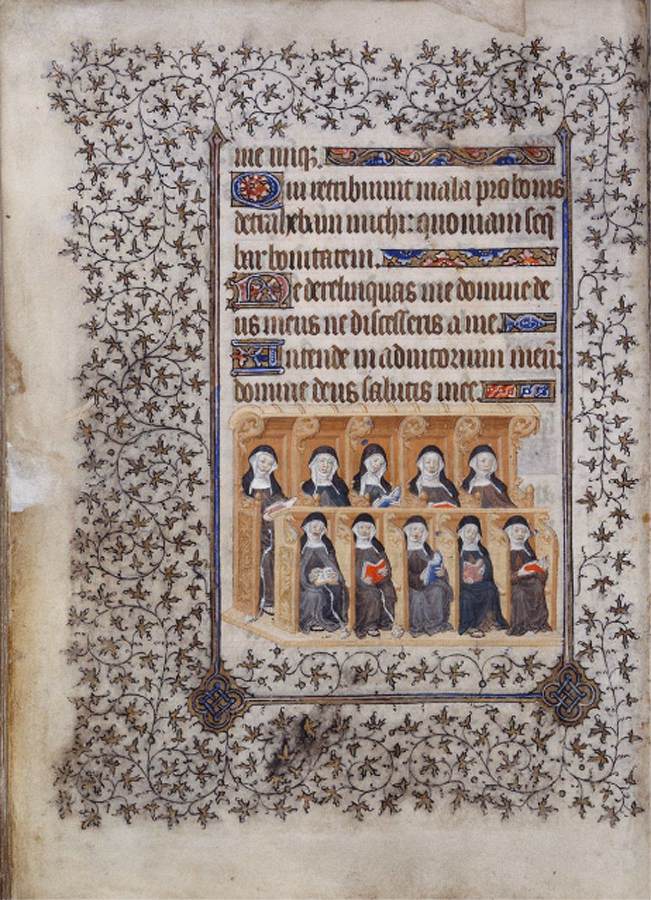 me iniq;
Qui retribuunt mala pro bonis
detrahebant michi: quoniam seq
bar bonitatem.
Ne derelinquas me domine de
us meus ne discesseris a me.
Intende in adiutorium meū:
domine deus salutis mee.